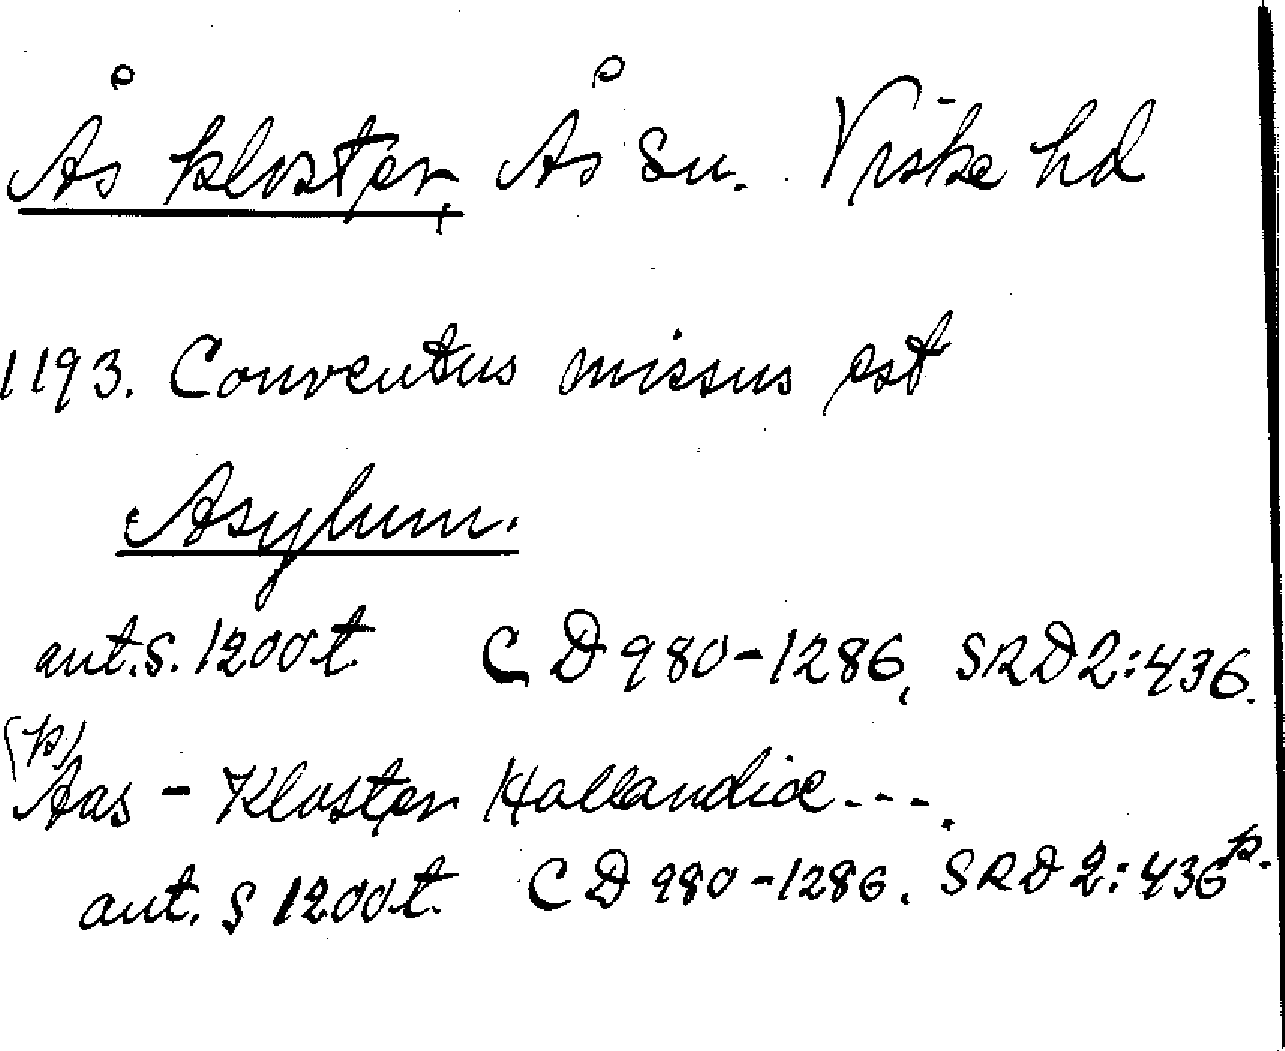 Ås kloster, Ås sn. Viske hd
1193. Conventus missus est
Asylum.
ant. S. 1200t. CD 980-1286, SRD 2:436.
(p) Aas - Kloster Hallandiæ ---.
ant. S 1200t. CD 980-1286. SRD 2:436 p.